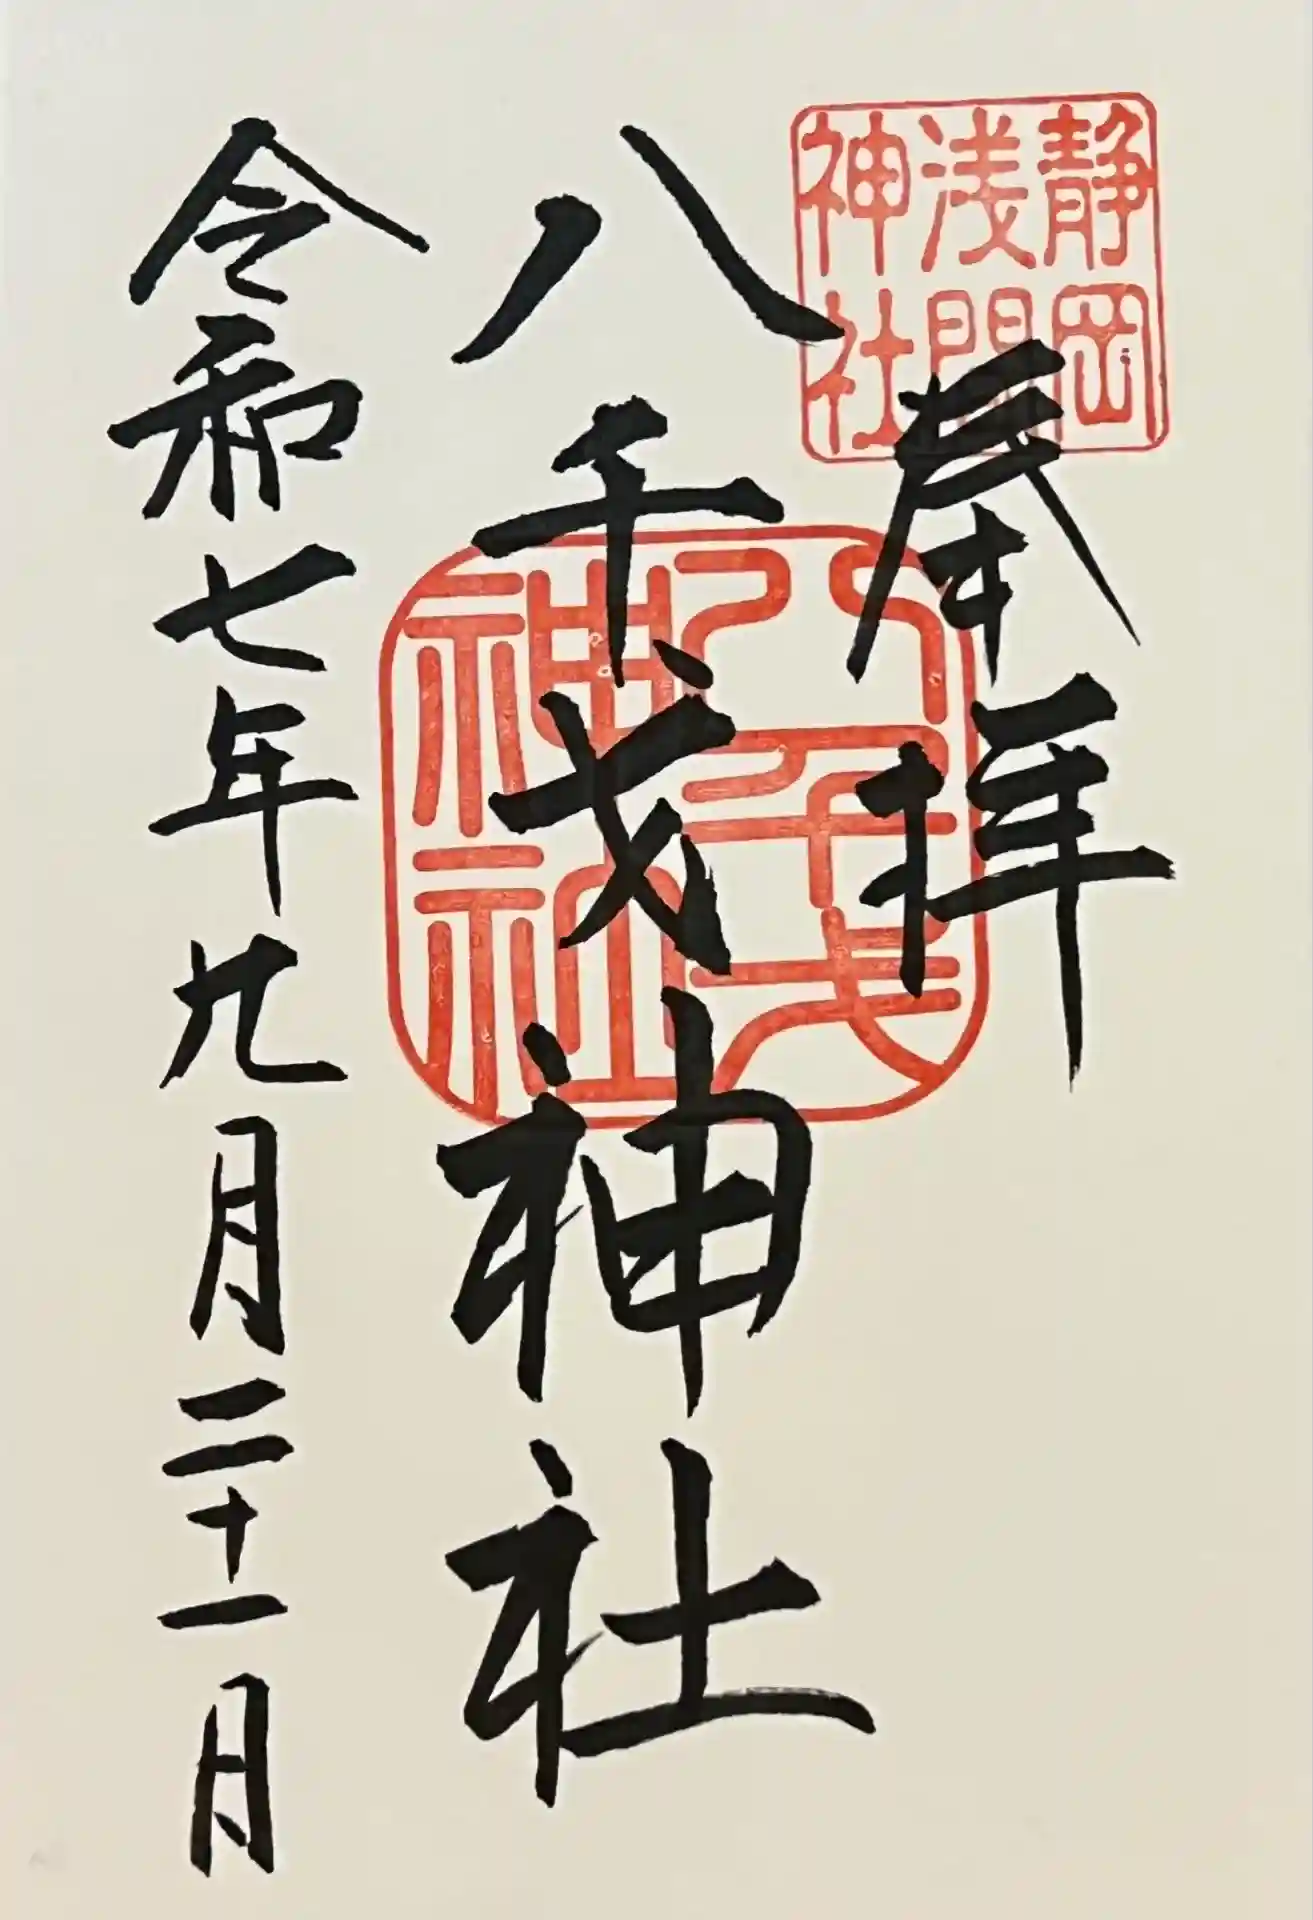 奉拝
静岡
浅間
神社
八千戈神社
八千戈
神社
令和七年九月二十一日